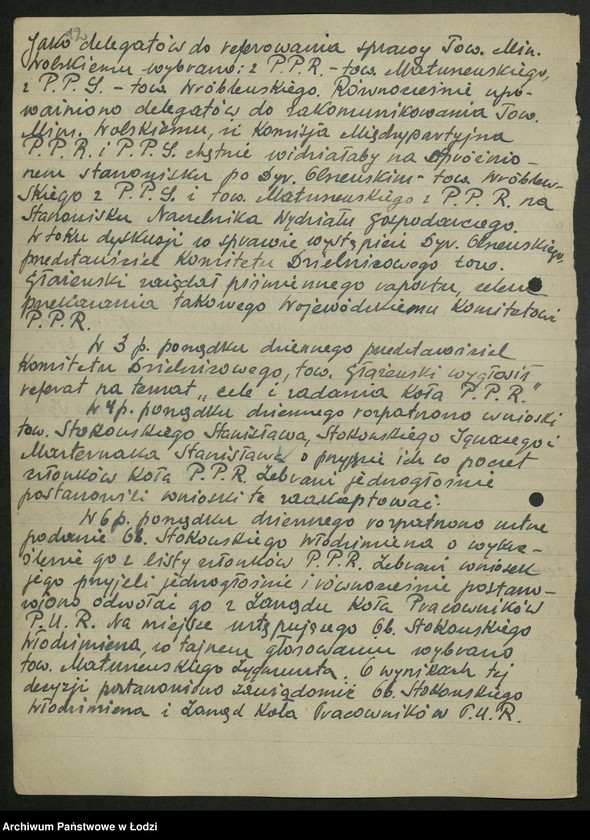 12
Jako delegatów do referowania sprawy Tow. Min.
Wolskiemu wybrano: z P.P.R. - tow. Matuszewskiego,
z P.P.S. - tow. Wróblewskiego. Równocześnie upo-
ważniono delegatów do zakomunikowania Tow.
Min. Wolskiemu, iż Komisja Międzypartyjna
P.P.R. i P.P.S. chętnie widziałaby na opróżnio-
nem stanowisku po Dyr. Olszewskim - tow. Wróblew-
skiego z P.P.S. i tow. Matuszewskiego z P.P.R. na
stanowisku Naczelnika Wydziału Gospodarczego.
W toku dyskusji w sprawie wystąpień Dyr. Olszewskiego,
przedstawiciel Komitetu Dzielnicowego tow.
zażądał piśmiennego raportu, celem
przekazania takowego Wojewódzkiemu Komitetowi
P.P.R.
W 3 p. porządku dziennego przedstawiciel
Komitetu Dzielnicowego, tow. wygłosił
referat na temat „cele i zadania Koła P.P.R."
W 4 p. porządku dziennego rozpatrzono wnioski
tow. Stokowskiego Stanisława, Stokowskiego Ignacego i
Stanisława o przyjęcie ich w poczet
członków Koła P.P.R. Zebrani jednogłośnie
postanowili wnioski te zaakceptować.
W 6 p. porządku dziennego rozpatrzono ustne
podanie Ob. Stokowskiego Włodzimierza o wykre-
ślenie go z listy członków P.P.R. Zebrani wniosek
jego przyjęli jednogłośnie i równocześnie postano-
wiono odwołać go z Zarządu Koła Pracowników
P.U.R. Na miejsce ustępującego Ob. Stokowskiego
Włodzimierza, w tajnem głosowaniu wybrano
tow. Matuszewskiego Zygmunta. O wynikach tej
decyzji postanowiono zawiadomić Ob. Stokowskiego
Włodzimierza i Zarząd Koła Pracowników P.U.R.
Archiwum Państwowe w Łodzi